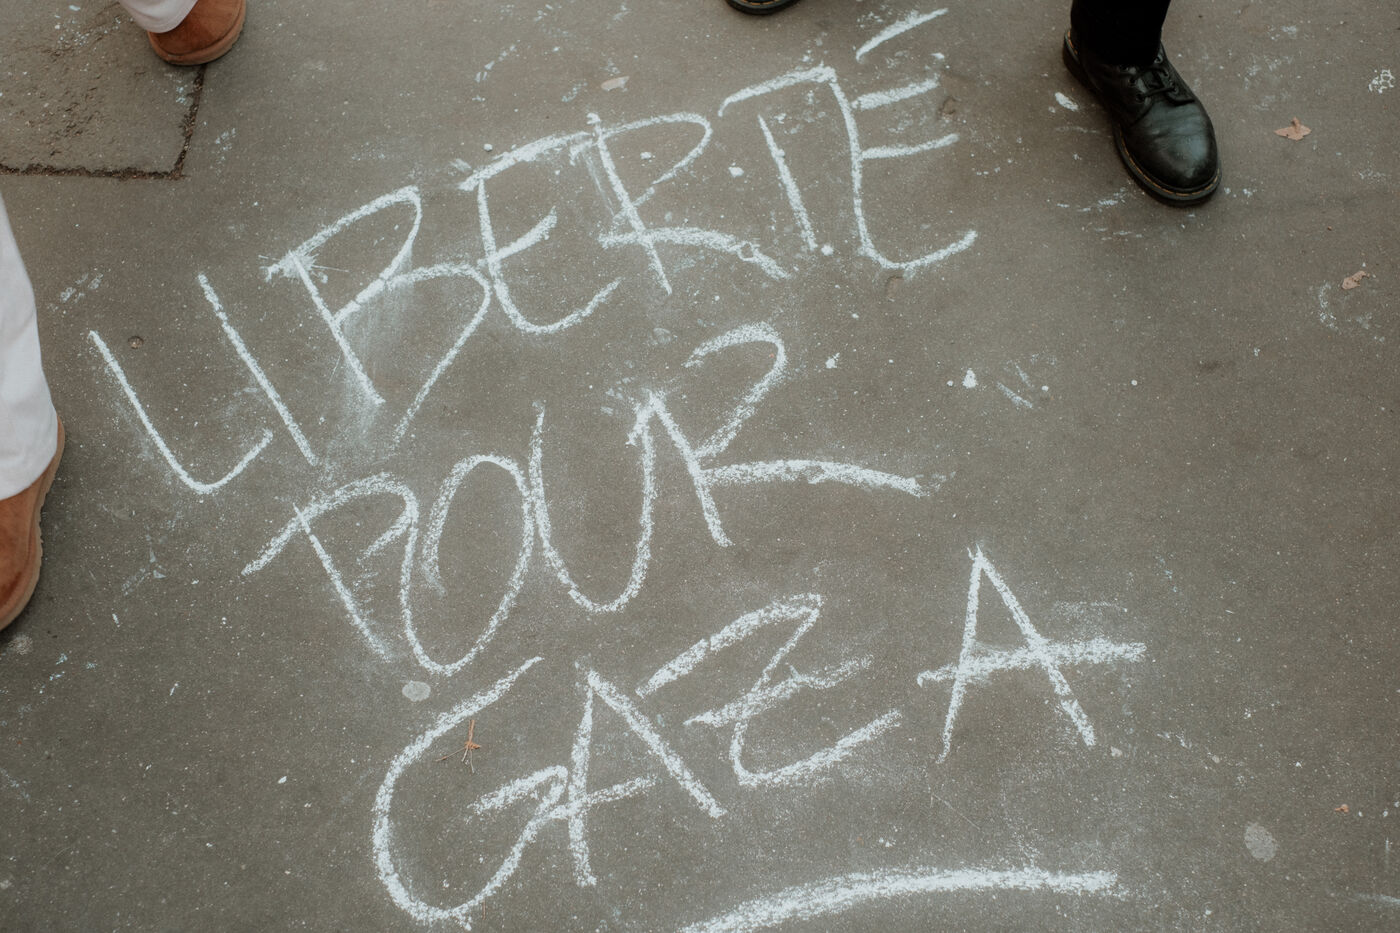 LIBERTÉ
POUR
GAZA